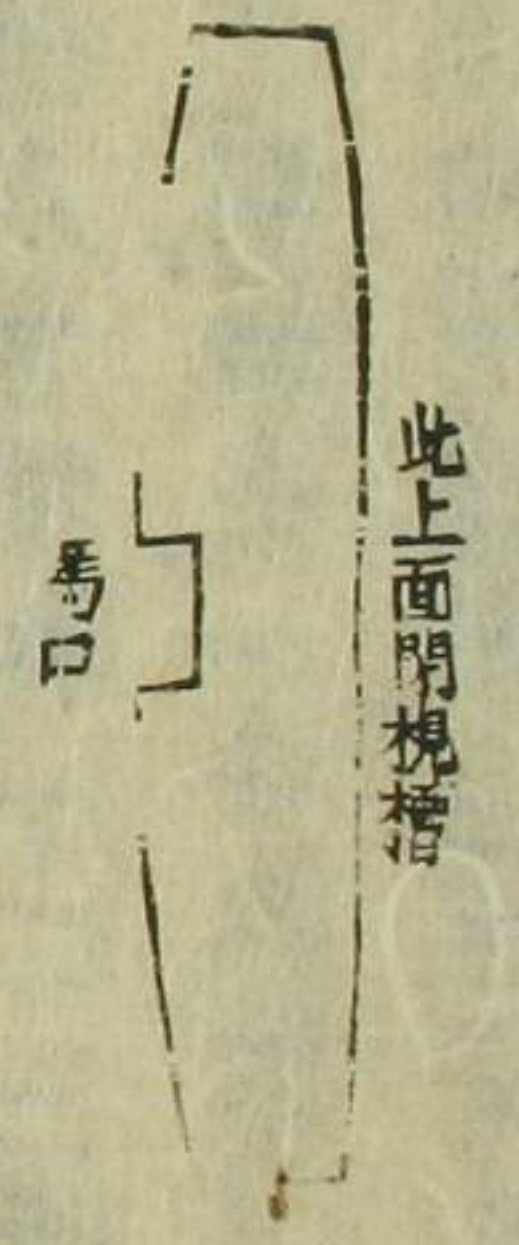 此上面開槻槽
馬口